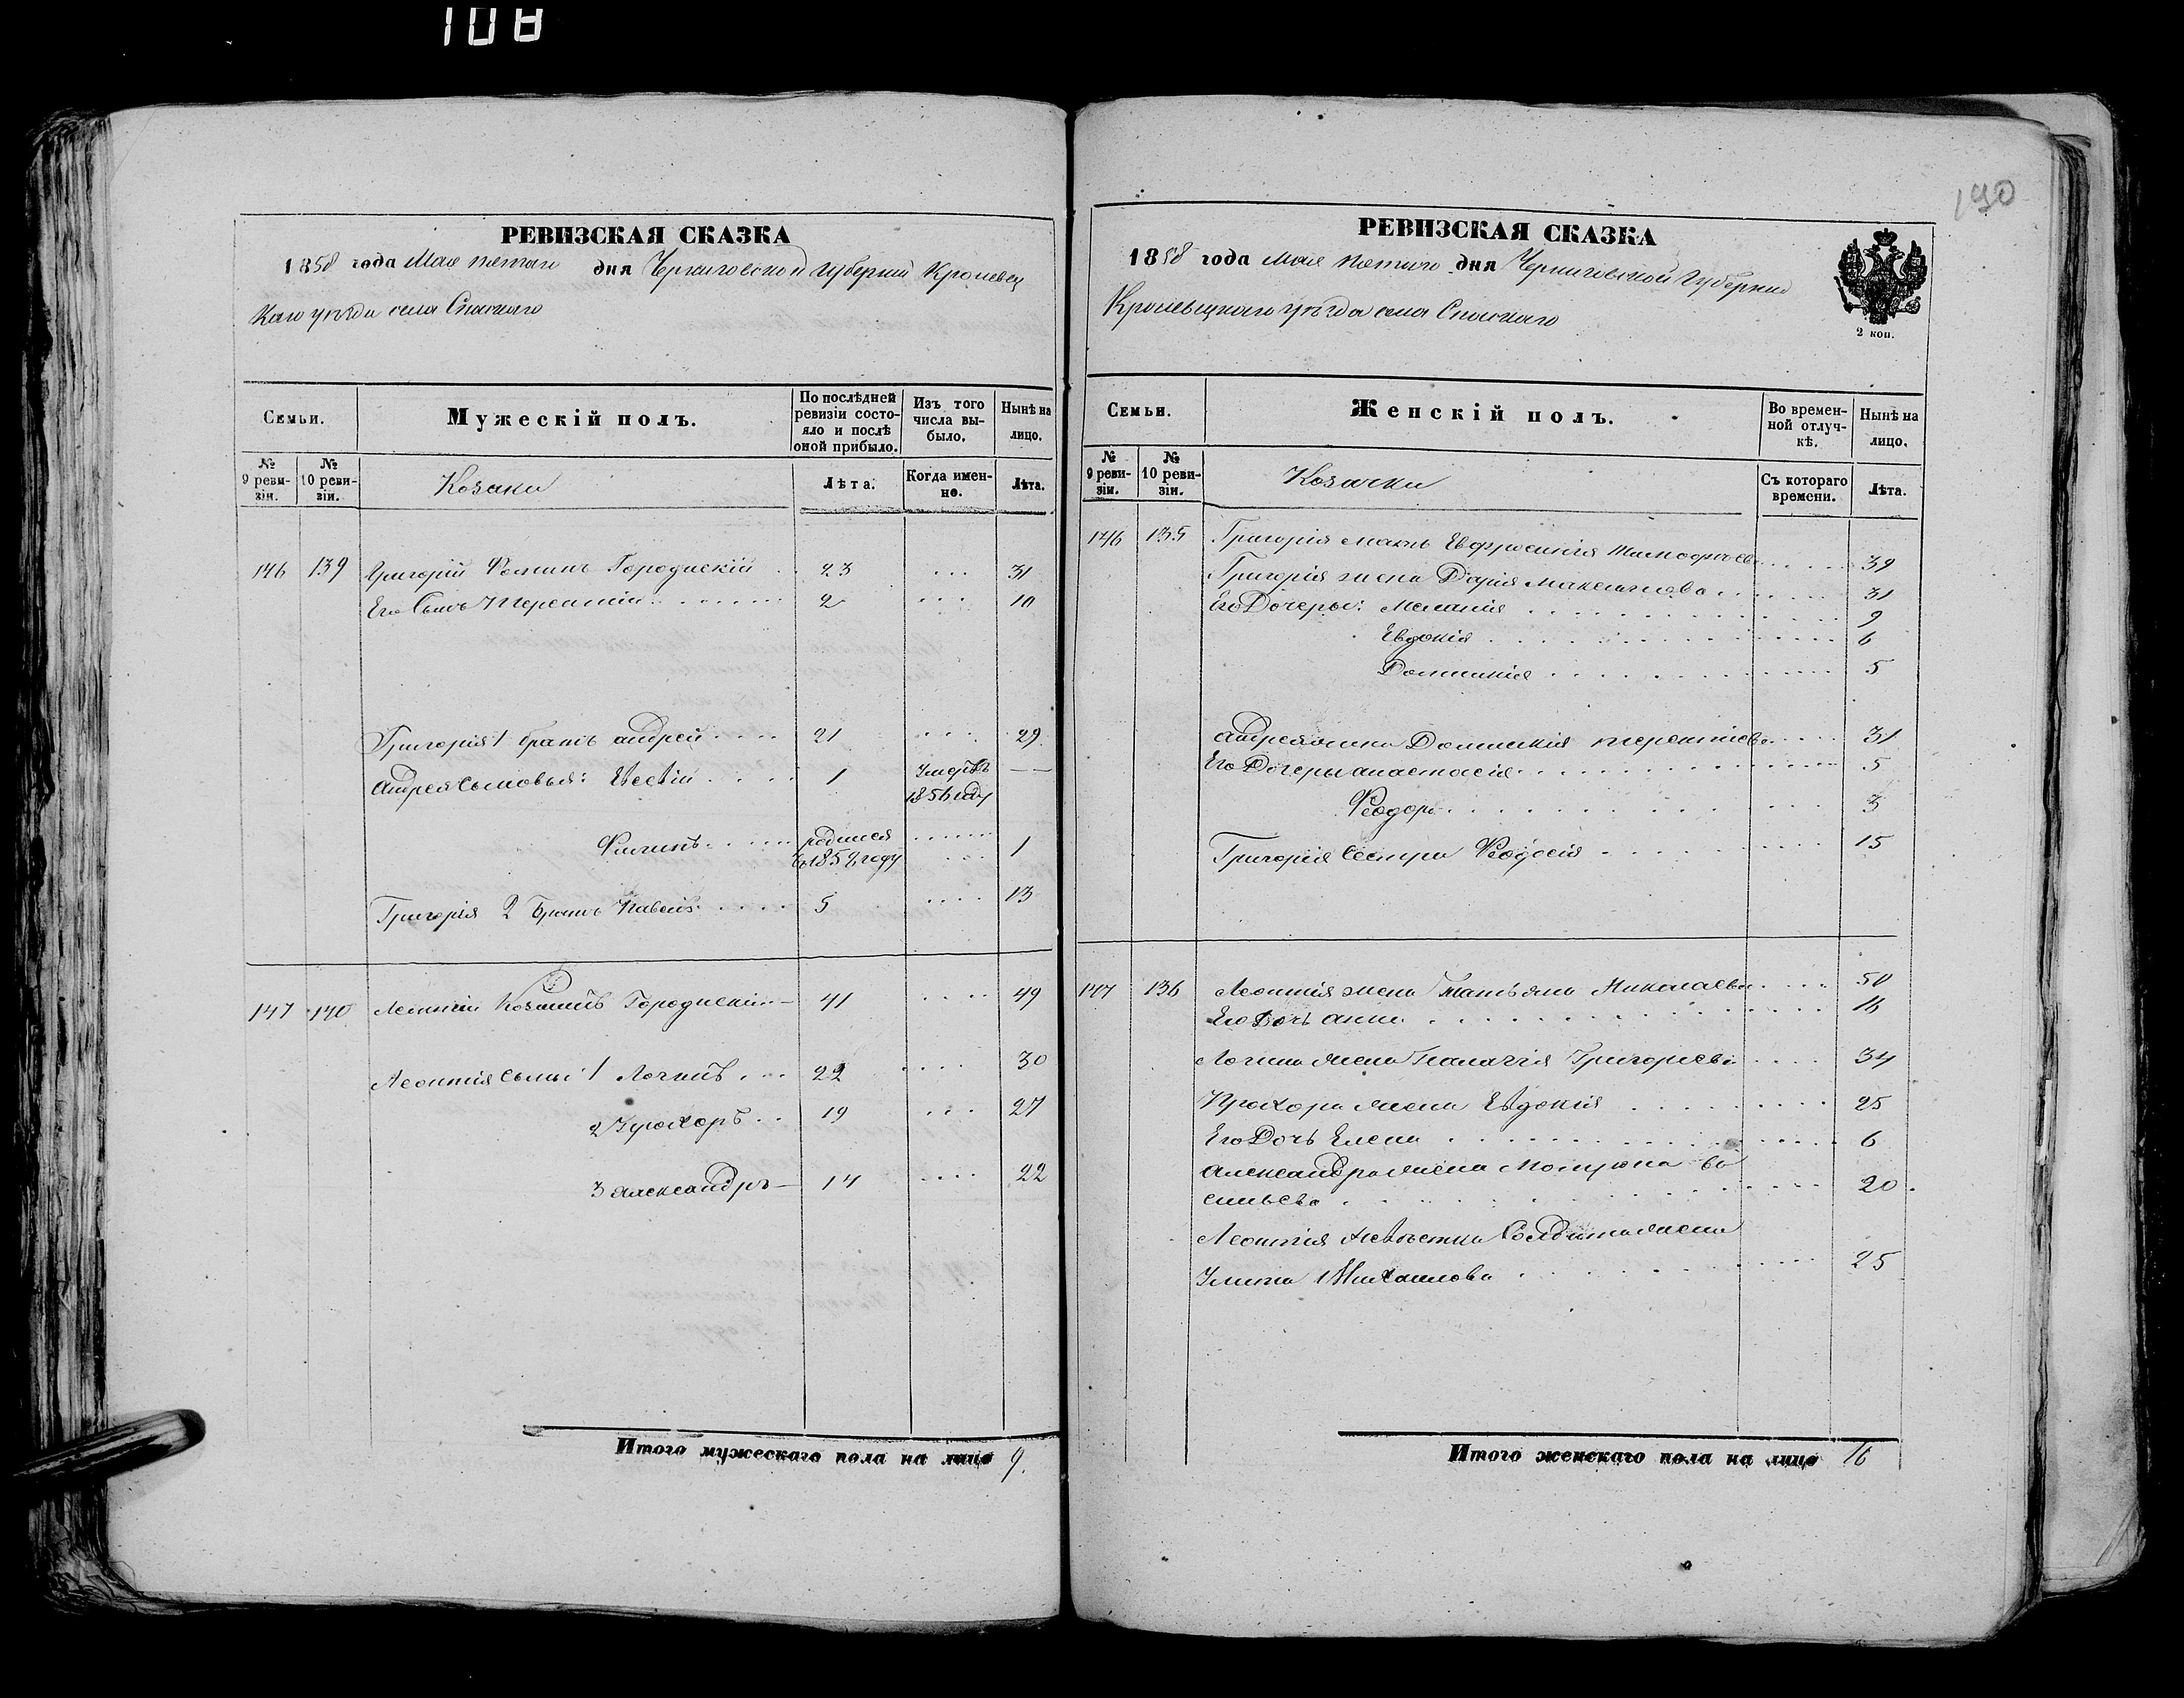 108
190
РЕВИЗСКАЯ СКАЗКА
1858 года Мая пятаго дня Черниговской губерніи Кролевец
каго уѣзда села Спаскаго
Семьи.
Мужескій полъ.
По послѣдней ревизіи состояло и послѣ оной прибыло.
Изъ того числа выбыло.
Нынѣ на лицо.
№ 9 ревизіи.
№ 10 ревизіи.
Козаки
Лѣта.
Когда именно.
Лѣта.
146 139 Григорій Фоминъ Городнскій 23 31
Его Сынъ Терентій 2 10
Григорія 1 братъ андрей 21 29
андрея сыновья: Евсѣй 1 Умеръ —
1856 году
Филипъ родился 1
въ 1858 году
Григорія 2 братъ Павелъ 5 13
147 140 Леонтій Козминъ Городнскій 41 49
Леонтія сыны 1 Логинъ 22 30
2 Прохоръ 19 27
3 александръ 14 22
Итого мужескаго пола на лицо 9.
РЕВИЗСКАЯ СКАЗКА
1858 года Мая пятаго дня Черниговской Губерніи
Кролевецкаго уѣзда села Спаскаго
2 коп.
Семьи.
Женскій полъ.
Во временной отлучкѣ.
Нынѣ на лицо.
№ 9 ревизіи.
№ 10 ревизіи.
Козачки
Съ котораго времени.
Лѣта.
146 135 Григорія мать Евфросинія Тимофѣева 39
Григорія жена Дарія Максимова 31
Его Дочеры: Меланія 9
Евдокія 6
Домникія 5
андрея жена Домникія терентіева 31
Его Дочеры анастасія 5
Феодора 3
Григорія Сестра Феодосія 15
147 136 Леонтія жена Татьяна Николаева 50
Его Дочь анна 16
Логина жена Пелагія Григориева 34
Прохора жена Евдокія 25
Его Дочь Елена 6
александра жена Мотрона Ва
сильева 20
Леонтія невѣстка Солдатка жена
Улита Михаилова 25
Итого женскаго пола на лицо 16